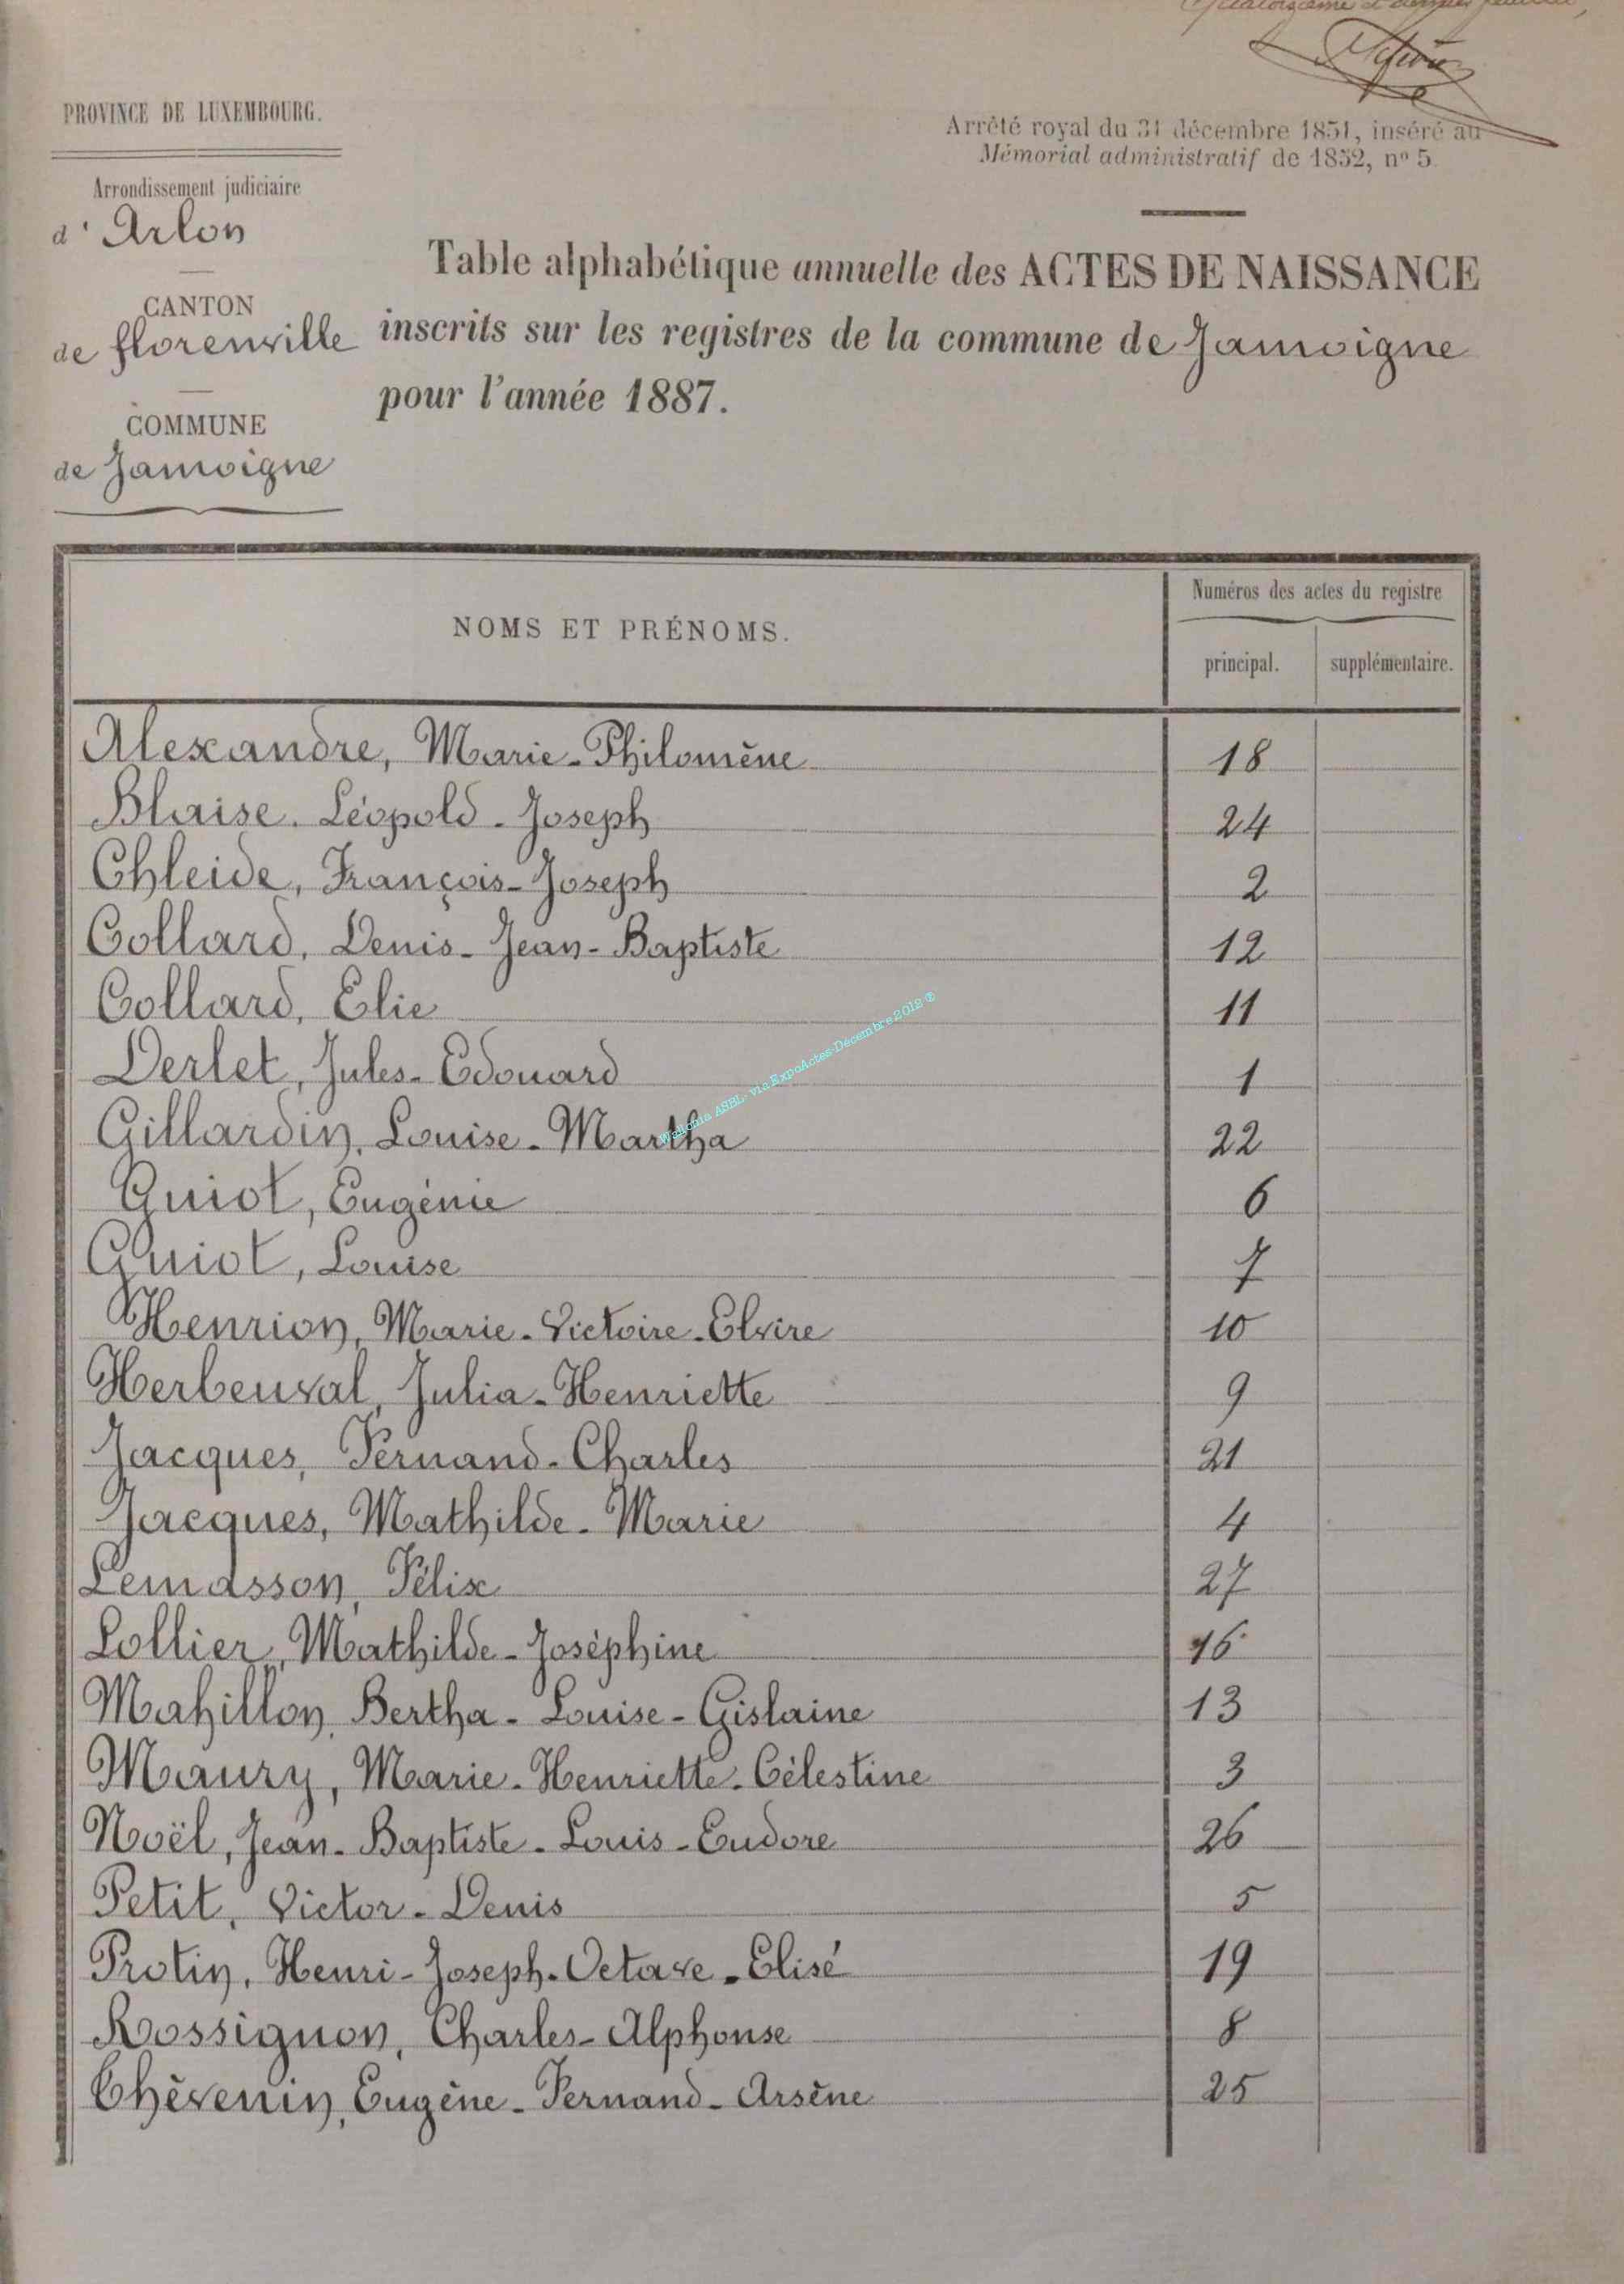 Quatorzième et dernier feuillet,
PROVINCE DE LUXEMBOURG.
Arrêté royal du 31 décembre 1851, inséré au
Mémorial administratif de 1852, nº 5.
Arrondissement judiciaire
d' Arlon
CANTON
de florenville
COMMUNE
de Jamoigne
Table alphabétique annuelle des ACTES DE NAISSANCE
inscrits sur les registres de la commune de Jamoigne
pour l'année 1887.
NOMS ET PRÉNOMS.
Numéros des actes du registre
principal. supplémentaire.
Alexandre, Marie-Philomène 18
Blaise. Léopold-Joseph 24
Chleide, François-Joseph 2
Collard, Denis-Jean-Baptiste 12
Collard, Elie 11
Derlet, Jules-Edouard 1
Gillardin, Louise-Martha 22
Guiot, Eugénie 6
Guiot, Louise 7
Henrion, Marie-Victoire-Elvire 10
Herbeuval, Julia-Henriette 9
Jacques, Fernand-Charles 21
Jacques, Mathilde-Marie 4
Lemasson, Félix 27
Lollier, Mathilde-Joséphine 16
Mahillon, Bertha-Louise-Gislaine 13
Maury, Marie-Henriette-Célestine 3
Noël, Jean-Baptiste-Louis-Eudore 26
Petit, Victor-Denis 5
Protin, Henri-Joseph-Octave-Elisé 19
Rossignon, Charles-Alphonse 8
Thèvenin, Eugène-Fernand-Arsène 25
Wallonia ASBL- via ExpoActes-Décembre 2018 ®